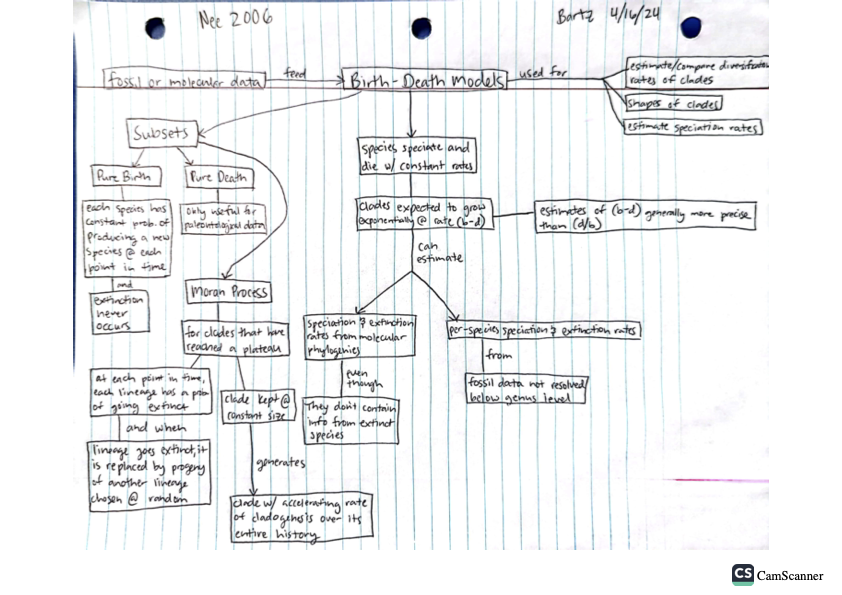 Nee 2006
Bartz 4/16/24
fossil or molecular data
feed
Birth-Death Models
used for
estimate/compare diversification
rates of clades
shapes of clades
estimate speciation rates
Subsets
Pure Birth
each species has
constant prob. of
producing a new
species @ each
point in time
and
extinction
never
occurs
Pure Death
only useful for
paleontological data
Moran Process
for clades that have
reached a plateau
at each point in time,
each lineage has a prob
of going extinct
and when
lineage goes extinct, it
is replaced by progeny
of another lineage
chosen @ random
clade kept @
constant size
generates
clade w/ accelerating rate
of cladogenesis over its
entire history
species speciate and
die w/ constant rates
clades expected to grow
exponentially @ rate (b-d)
estimates of (b-d) generally more precise
than (d/b)
can
estimate
speciation & extinction
rates from molecular
phylogenies
even
though
They don't contain
info from extinct
species
per-species speciation & extinction rates
from
fossil data not resolved
below genus level
CS CamScanner